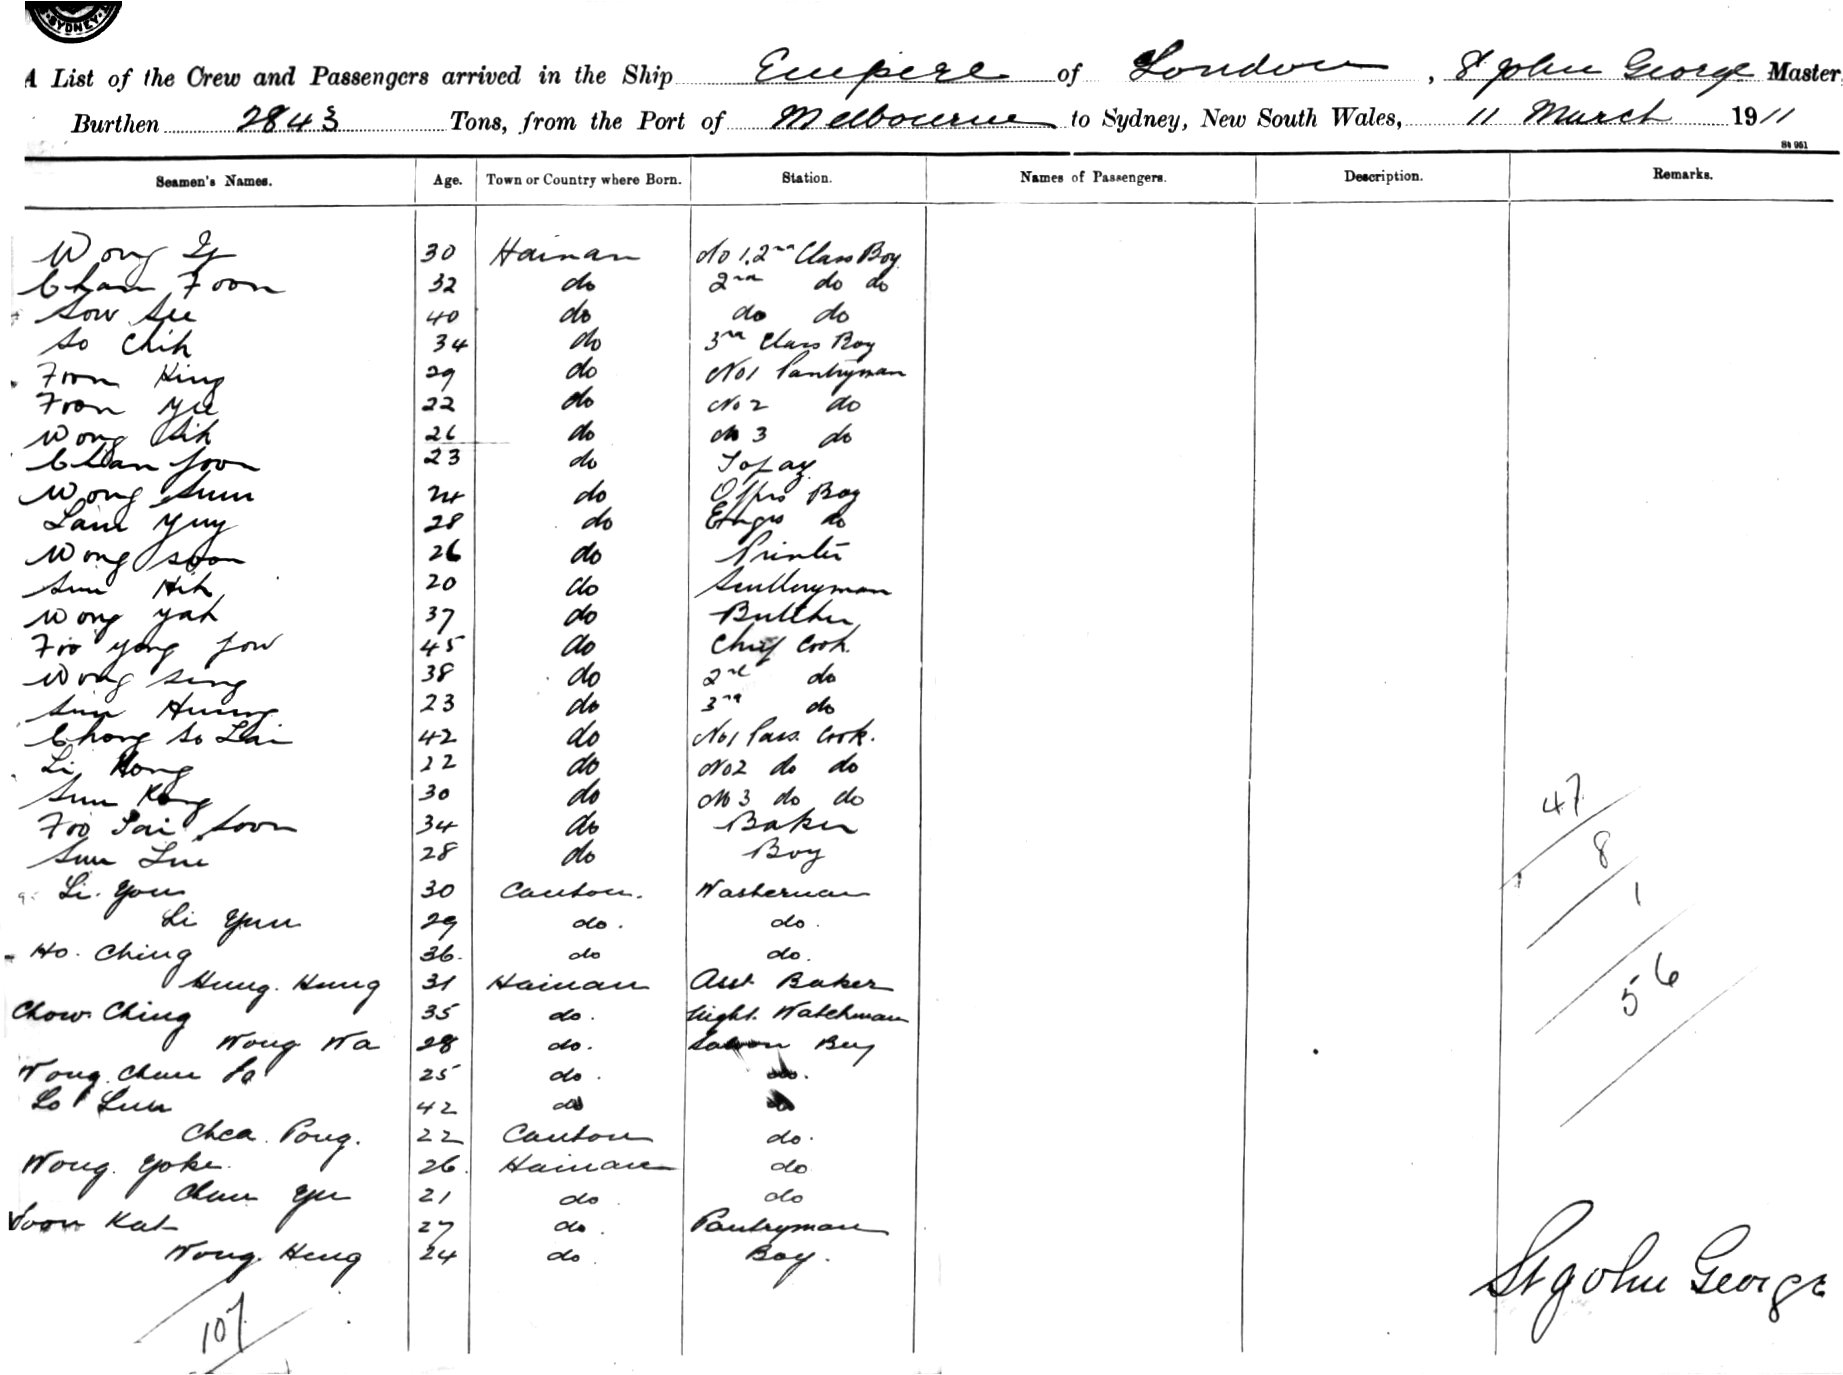 SYDNEY
A List of the Crew and Passengers arrived in the Ship Empire of London, St John George Master,
Burthen 2843 Tons, from the Port of Melbourne to Sydney, New South Wales, 11 March 1911
St 951
Seamen's Names. Age. Town or Country where Born. Station. Names of Passengers. Description. Remarks.
Wong 30 Hainan No 1. 2nd Class Boy
Chan Foon 32 do 2nd do do
Sow See 40 do do do
So Chih 34 do 3rd Class Boy
Foon King 29 do No 1 Pantryman
Foon Yee 22 do No 2 do
Wong Sih 26 do No 3 do
Chan Joon 23 do Topaz
Wong Sum 24 do Offrs Boy
Lam Yuy 28 do Engrs do
Wong Soon 26 do Printer
Sim Hih 20 do Sculleryman
Wong Yah 37 do Butcher
Foo Yong Jow 45 do Chief Cook.
Wong Sing 38 do 2nd do
Sim Hung 23 do 3rd do
Chong So Lai 42 do No 1 Pass. Cook.
Li Hong 22 do No 2 do do
Sum Kong 30 do No 3 do do
Foo Tai Soon 34 do Baker
Sum Lui 28 do Boy
Li. You 30 Canton. Washerman
Li Yun 29 do. do.
Ho. Ching 36. do do.
Hung. Hung 31 Hainan Asst. Baker
Chow Ching 35 do. Night. Watchman
Wong Wa 28 do. Saloon Boy
Wong. Chun 25 do. do.
Lo Lun 42 do do
Chea. Pong. 22 Canton do.
Wong. Yoke. 26. Hainan do
Chun Yu 21 do. do
Soon Kat 27 do. Pantryman
Wong. Heng 24 do. Boy.
47
8
1
56
107
St John George